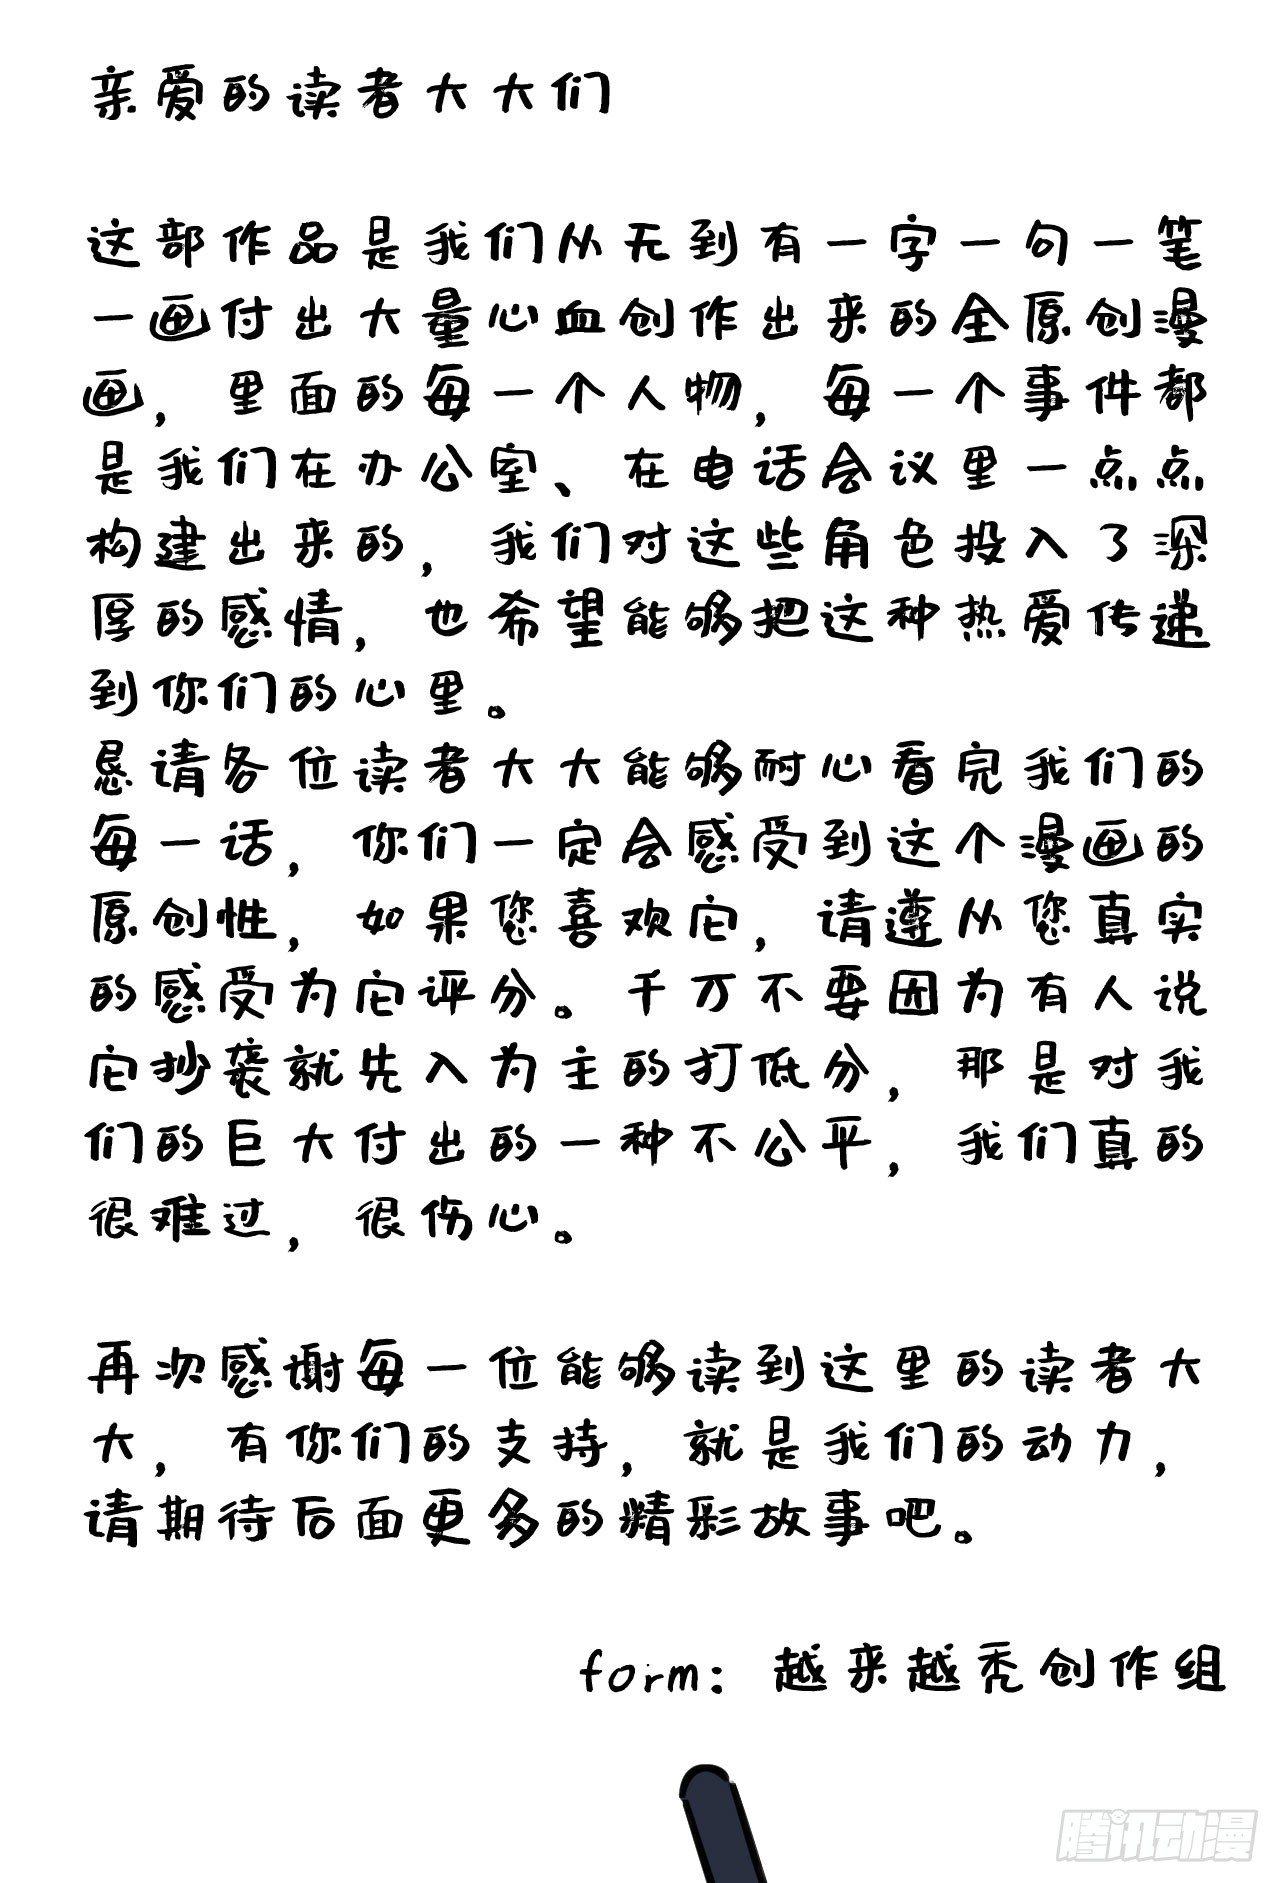 亲爱的读者大大们
这部作品是我们从无到有一字一句一笔
一画付出大量心血创作出来的全原创漫
画，里面的每一个人物，每一个事件都
是我们在办公室、在电话会议里一点点
构建出来的，我们对这些角色投入了深
厚的感情，也希望能够把这种热爱传递
到你们的心里。
恳请各位读者大大能够耐心看完我们的
每一话，你们一定会感受到这个漫画的
原创性，如果您喜欢它，请遵从您真实
的感受为它评分。千万不要因为有人说
它抄袭就先入为主的打低分，那是对我
们的巨大付出的一种不公平，我们真的
很难过，很伤心。
再次感谢每一位能够读到这里的读者大
大，有你们的支持，就是我们的动力，
请期待后面更多的精彩故事吧。
form：越来越秃创作组
腾讯动漫